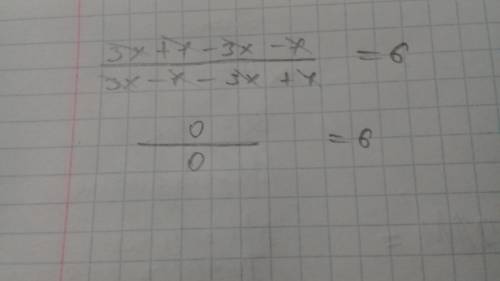 3x + 7 - 3x - 7 = 6
3x - 7 - 3x + 7
0 = 6
0